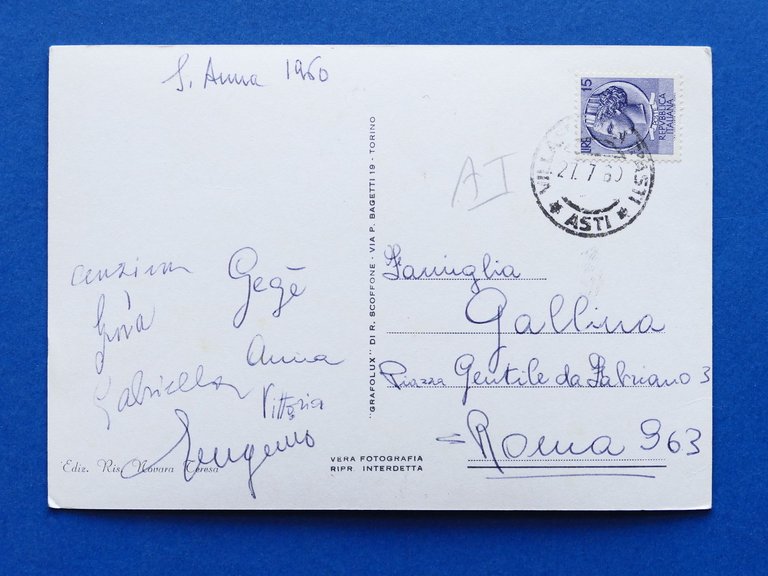 S. Anna 1960
Gegè
Anna
Gabriella
Vittoria
Eugenio
Ediz. Ris. Novara Teresa
"GRAFOLUX" DI R. SCOFFONE - VIA P. BAGETTI 19 - TORINO
VERA FOTOGRAFIA
RIPR. INTERDETTA
15
LIRE
REPVBBLICA
ITALIANA
21.7.60
* ASTI *
AI
Famiglia
Gallina
Piazza Gentile da Fabriano 3
Roma 963